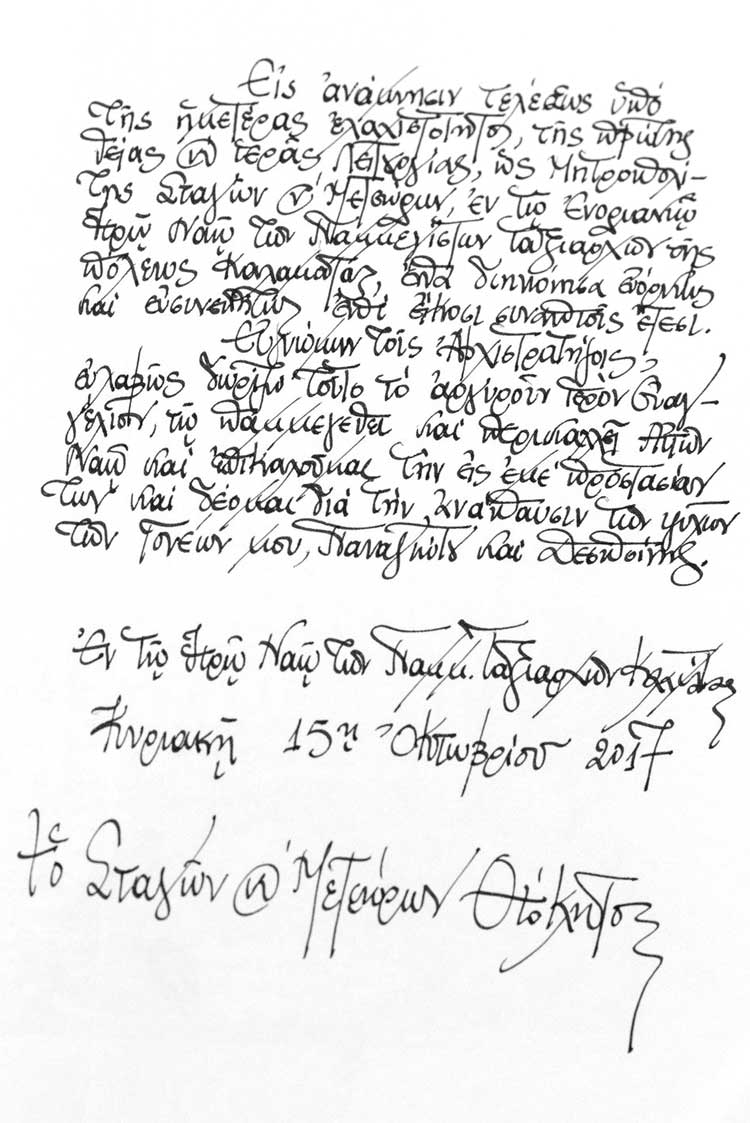 Εἰς ἀνάμνησιν τελέσεως ὑπό
τῆς ἡμετέρας ἐλαχιστότητος, τῆς πρώτης
θείας καὶ ἱερᾶς Λειτουργίας, ὡς Μητροπολί-
της Σταγῶν κ' Μετεώρων, ἐν τῷ Ἐνοριακῷ
Ἱερῷ Ναῷ τῶν Παμμεγίστων Ταξιαρχῶν τῆς
πόλεως Καλαμάτας, ἔνθα διηκόνησα εὐόρκως
καὶ εὐσυνειδήτως ἐπί εἴκοσι συναπτοῖς ἔτεσι.
Εὐγνώμων τοῖς Ἀρχιστρατήγοις,
εὐλαβῶς δωρίζω τοῦτο τό ἀργυροῦν Ἱερόν Εὐαγ-
γέλιον, τῷ παμμεγέθει καί περικαλλεῖ Αὐτῶν
Ναῷ καί ἐπικαλοῦμαι τήν εἰς ἐμέ προστασίαν
των καί δέομαι διά τήν ἀνάπαυσιν τῶν ψυχῶν
τῶν Γονέων μου, Παναγιώτου καί Δεσποίνης.
Ἐν τῷ Ἱερῷ Ναῷ τῶν Παμμ. Ταξιαρχῶν
Κυριακῇ 15ῃ Ὀκτωβρίου 2017
† ὁ Σταγῶν κ' Μετεώρων Θεόκλητος